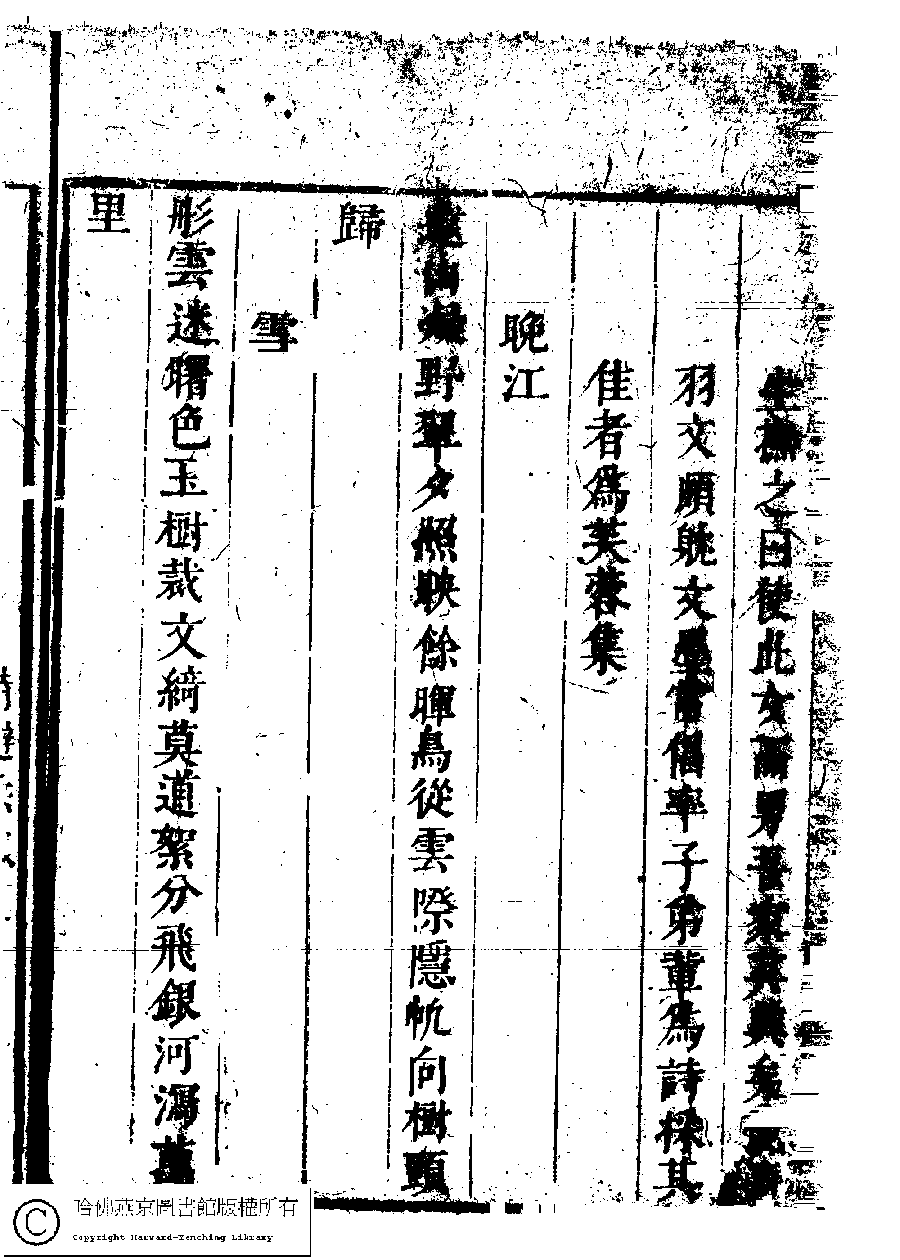 生撫之曰使此女而男吾家其興矣
羽文頗眺文墨嘗倡率子弟輩為詩採其
佳者為芙蓉集
晚江
遠岫凝野翠夕照映餘暉鳥從雲際隱帆向樹頭
歸
雪
彤雲迷曙色玉樹裁文綺莫道絮分飛銀河瀉萬
里
哈佛燕京圖書館版權所有
Copyright Harvard-Yenching Library